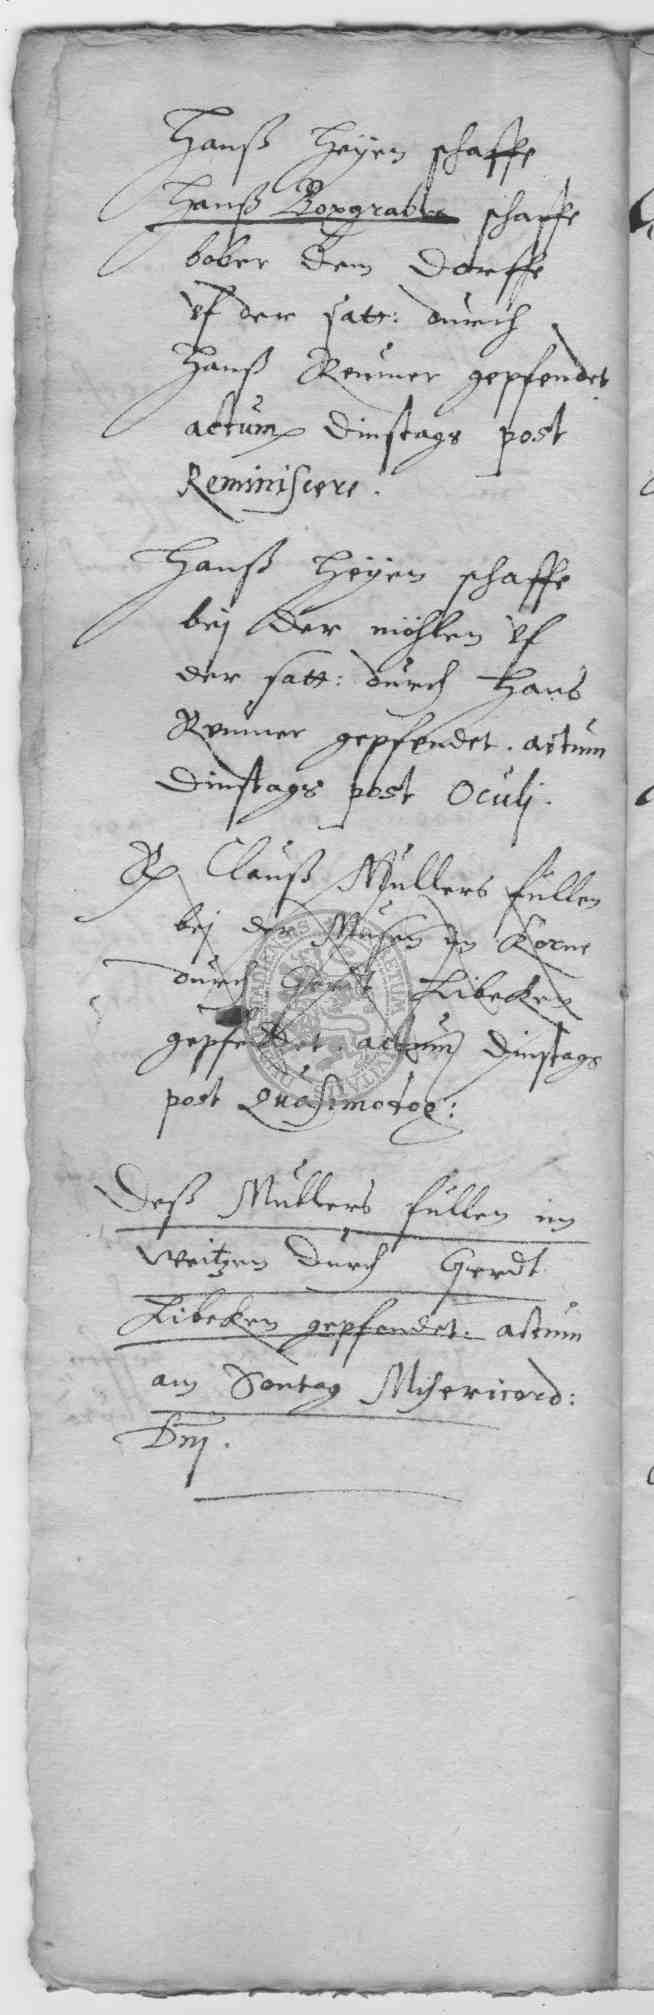 Hanß Heÿen schaffe
Hanß Boxgrabe schaffe
bober dem dorffe
vf der satt: durch
Hanß Reumer gepfendet
actum Dinstags post
Reminiscere.
Hanß Heÿen schaffe
beÿ der möhlen vf
der satt: durch Hans
Reumer gepfendet. actum
Dinstags post Oculj.
Clauß Müllers füllen
beÿ der im Korne
durch Gerdt Libecken
gepfendet. actum Dinstags
post Quasimodog:
Deß Müllers füllen im
weitzen durch Gerdt
Libecken gepfendet: actum
am Sontag Misericord:
Dnj.